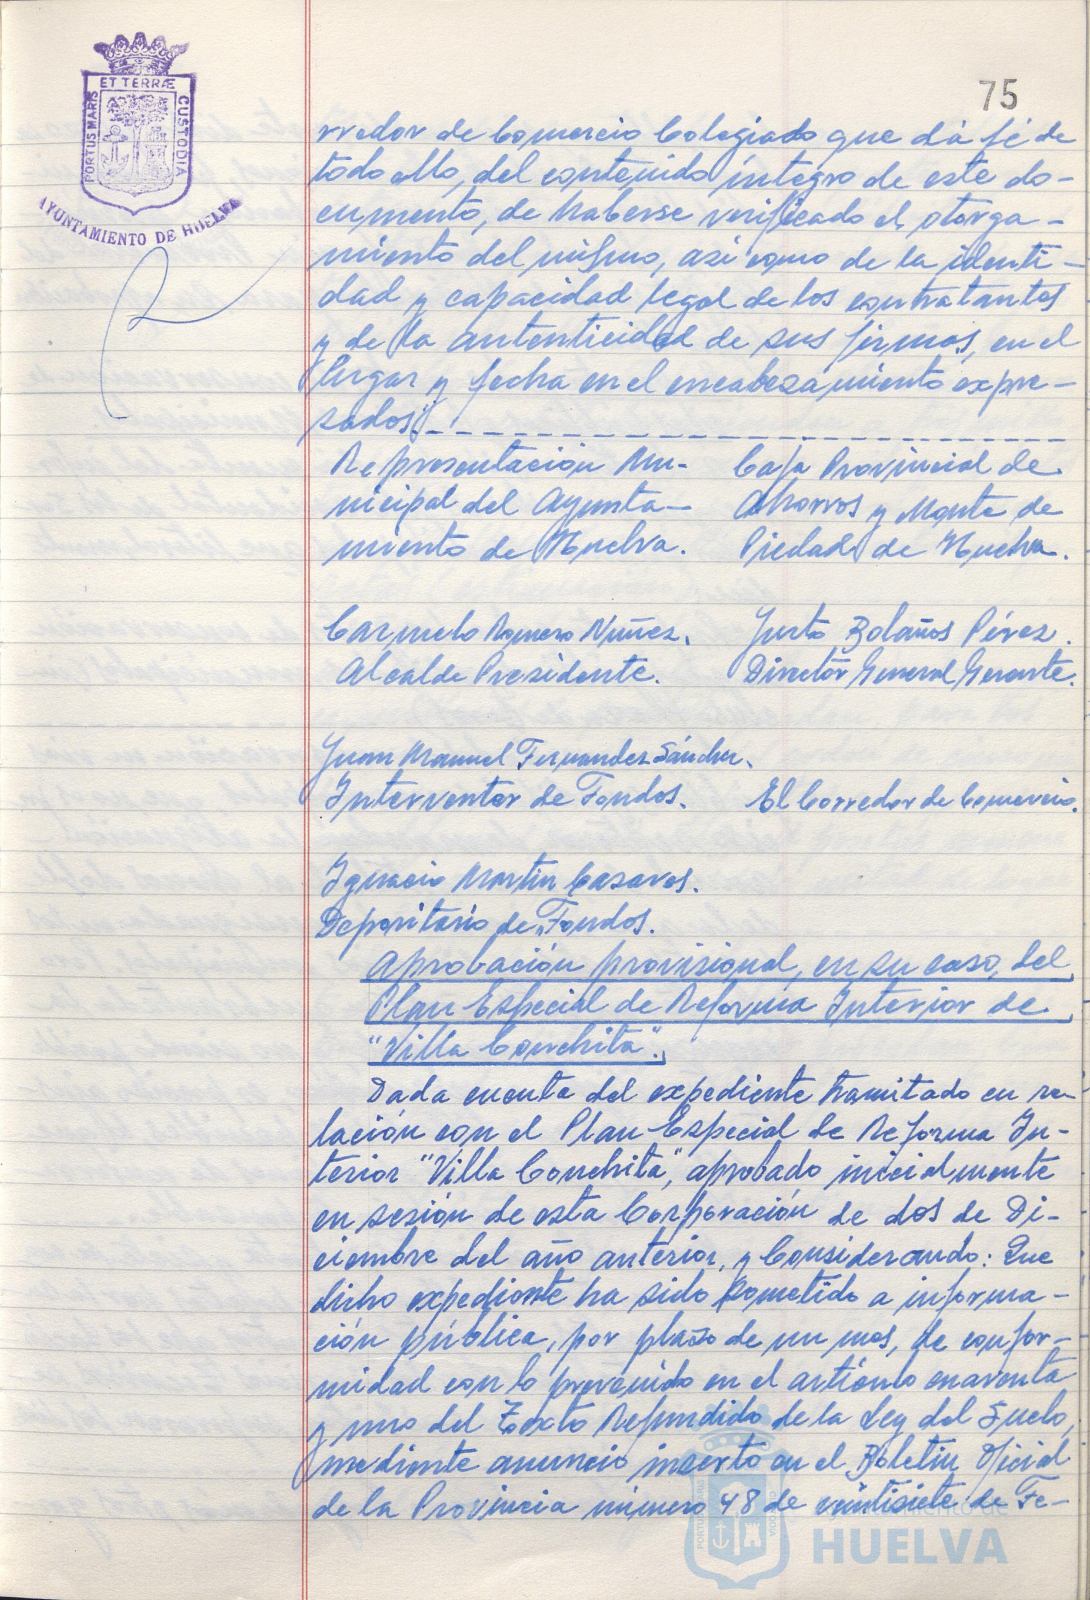 ET TERRÆ
PORTUS MARIS
CUSTODIA
AYUNTAMIENTO DE HUELVA
75
rredor de Comercio Colegiado que dá fé de
todo ello, del contenido íntegro de este do-
cumento, de haberse verificado el otorga-
miento del mismo, asi como de la identi-
dad y capacidad legal de los contratantes
y de la autenticidad de sus firmas, en el
lugar y fecha en el encabezamiento expre-
sados".
Representación Mu-
nicipal del Ayunta-
miento de Huelva.
Caja Provincial de
Ahorros y Monte de
Piedad de Huelva.
Carmelo Romero Núñez.
Alcalde Presidente.
Justo Bolaños Pérez.
Director General Gerente.
Juan Manuel Fernandez Sánchez.
Interventor de Fondos.
El Corredor de Comercio.
Ignacio Martin Casares.
Depositario de Fondos.
Aprobación provisional, en su caso, del
Plan Especial de Reforma Interior de
"Villa Conchita".
Dada cuenta del expediente tramitado en re-
lación con el Plan Especial de Reforma In-
terior "Villa Conchita", aprobado inicialmente
en sesión de esta Corporación de dos de Di-
ciembre del año anterior, y Considerando: Que
dicho expediente ha sido sometido a informa-
ción pública, por plazo de un mes, de confor-
midad con lo prevenido en el artículo cuarenta
y uno del Texto Refundido de la Ley del Suelo,
mediante anuncio inserto en el Boletin Oficial
de la Provincia número 48 de veintisiete de Fe-
HUELVA